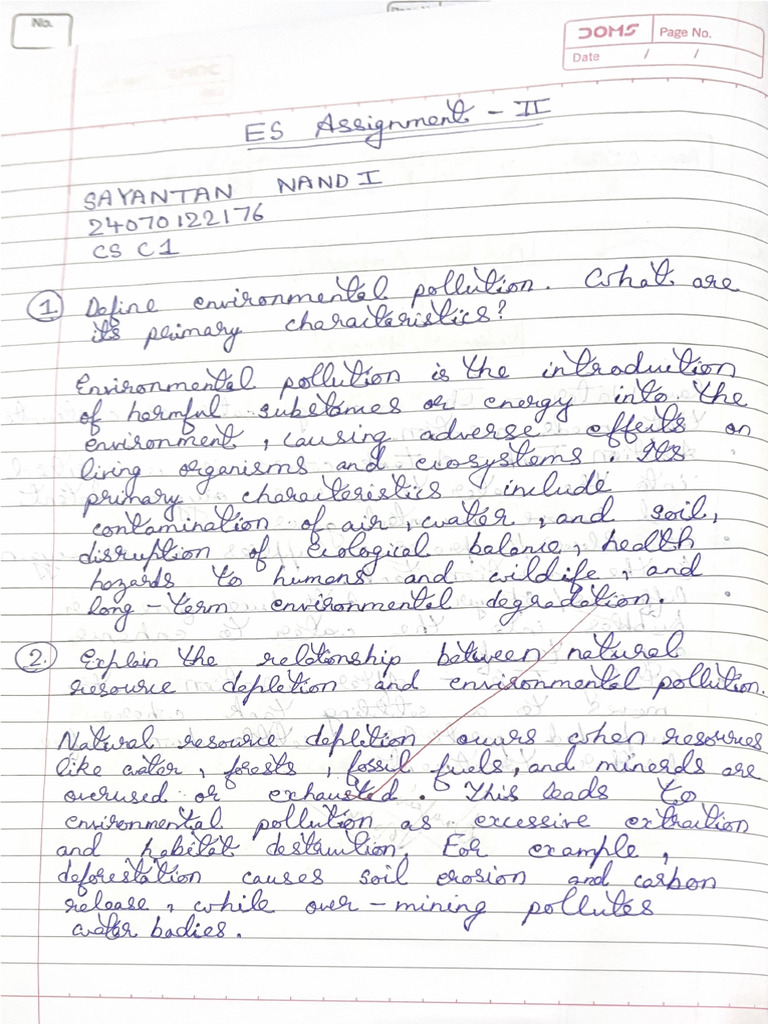 No.
DOMS Page No.
Date / /
ES Assignment - II
SAYANTAN NANDI
24070122176
CS C1
1 Define environmental pollution. What are
its primary characteristics?
Environmental pollution is the introduction
of harmful substances or energy into the
environment, causing adverse effects on
living organisms and ecosystems. Its
primary characteristics include
contamination of air, water, and soil,
disruption of ecological balance, health
hazards to humans and wildlife, and
long-term environmental degradation.
2. Explain the relationship between natural
resource depletion and environmental pollution.
Natural resource depletion occurs when resources
like water, forests, fossil fuels, and minerals are
overused or exhausted. This leads to
environmental pollution as excessive extraction
and habitat destruction. For example,
deforestation causes soil erosion and carbon
release, while over-mining pollutes
water bodies.